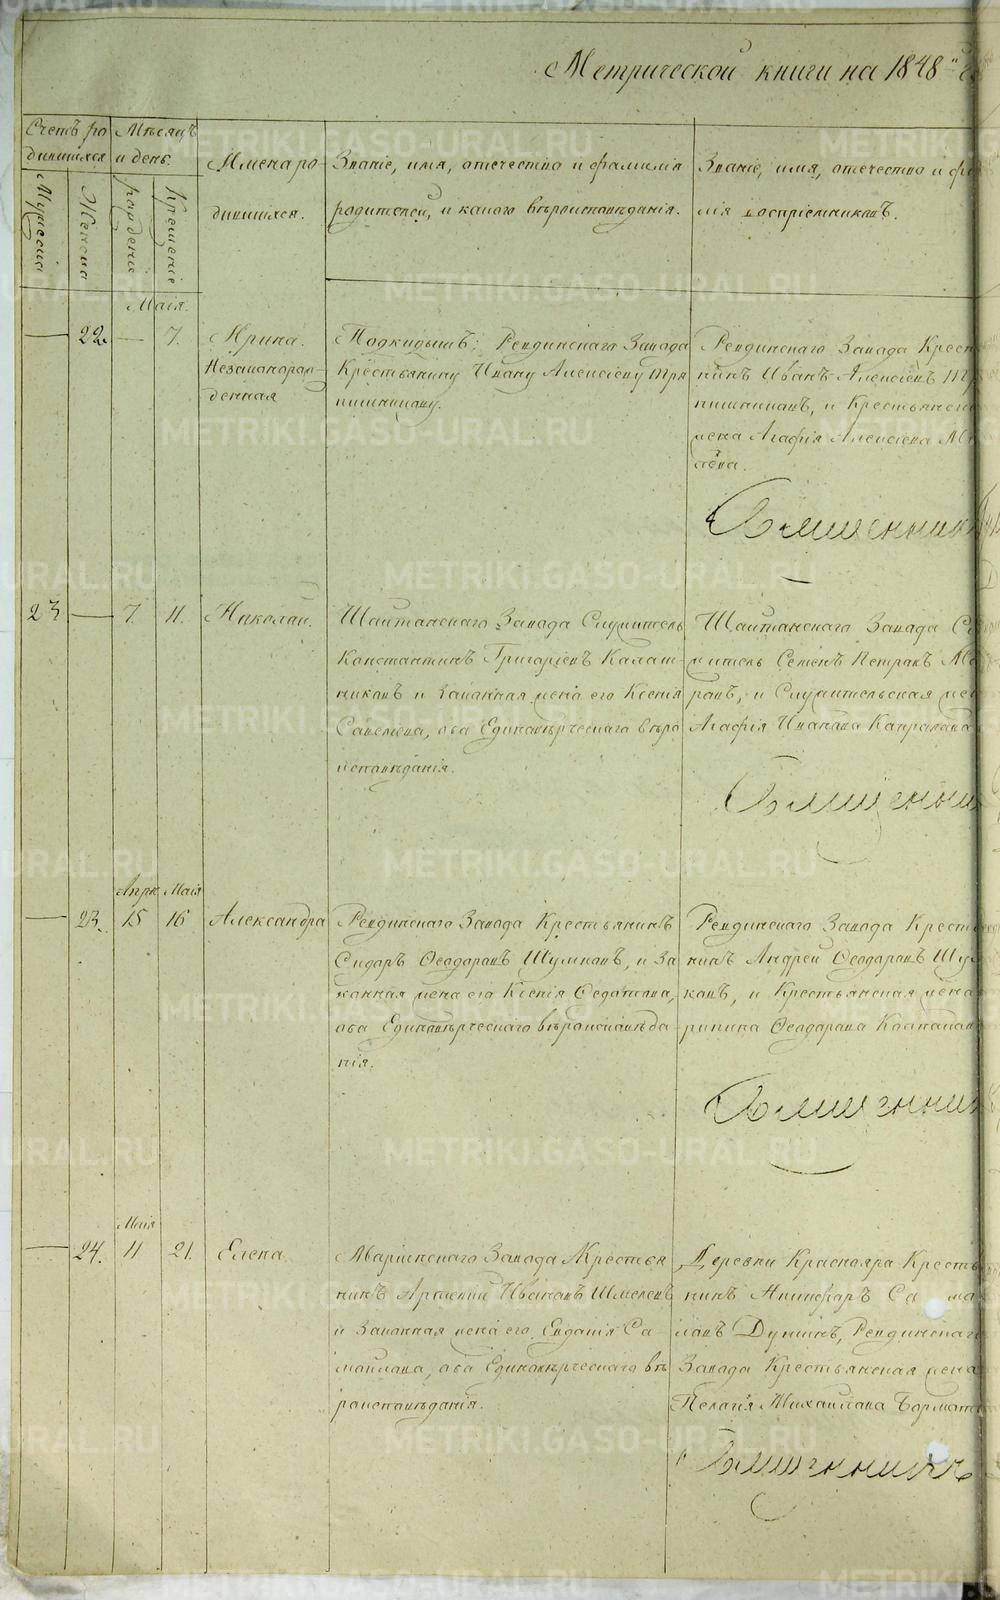 Метрической книги на 1848й
Счетъ ро Мѣсяцъ
дившихся и день.
Мужеска Женска рожденія Крещенія
Имена ро
дившихся.
Званіе, имя, отечество и фамилія
родителей, и какого вѣроисповѣданія.
Званіе, имя, отечество и фа
мія воспріемниковъ.
Маія.
— 22. — 7.
Ирина.
Незаконорож-
денная
Подкидышъ: Ревдинскаго Завода
Крестьянину Ивану Алексіеву Тря
пишникову.
Ревдинскаго Завода Крест
нинъ Иванъ Алексіевъ Тр
пишниковъ, и Крестьянск
жена Агафія Алексіева
аева.
Священник
23 — 7. 11.
Николай.
Шайтанскаго Завода Служитель
Константинъ Григоріевъ Калаш-
никовъ и Законная жена его Ксенія
Савельева, оба Единовѣрческаго вѣро
исповѣданія.
Шайтанскаго Завода Сл
житель Семенъ Петровъ Ма
ровъ, и Служительская же
Агафія Иванова Капралова
Священни
Апрѣ. Маія
— 23. 15 16
Александра
Ревдинскаго Завода Крестьянинъ
Сидоръ Ѳеодоровъ Шумковъ, и За
конная жена его Ксенія Федотова,
оба Единовѣрческаго вѣроисповѣда-
нія.
Ревдинскаго Завода Кресть
нинъ Андрей Ѳеодоровъ Шум
ковъ, и Крестьянская жена
рипина Ѳеодорова Колпаков
Священник
Маія
— 24. 11 21.
Елена.
Маріинскаго Завода Крестья
нинъ Артемій Ивановъ Шмелевъ
и Законная жена его Евдокія Са-
мойлова, оба Единовѣрческаго вѣ
роисповѣданія.
Деревни Краснояра Кресть
нинъ Никифоръ Са
ловъ Дункинъ, Ревдинскаг
Завода Крестьянская жена
Пелагія Михайлова Бормат
Священникъ
METRIKI.GASO-URAL.RU